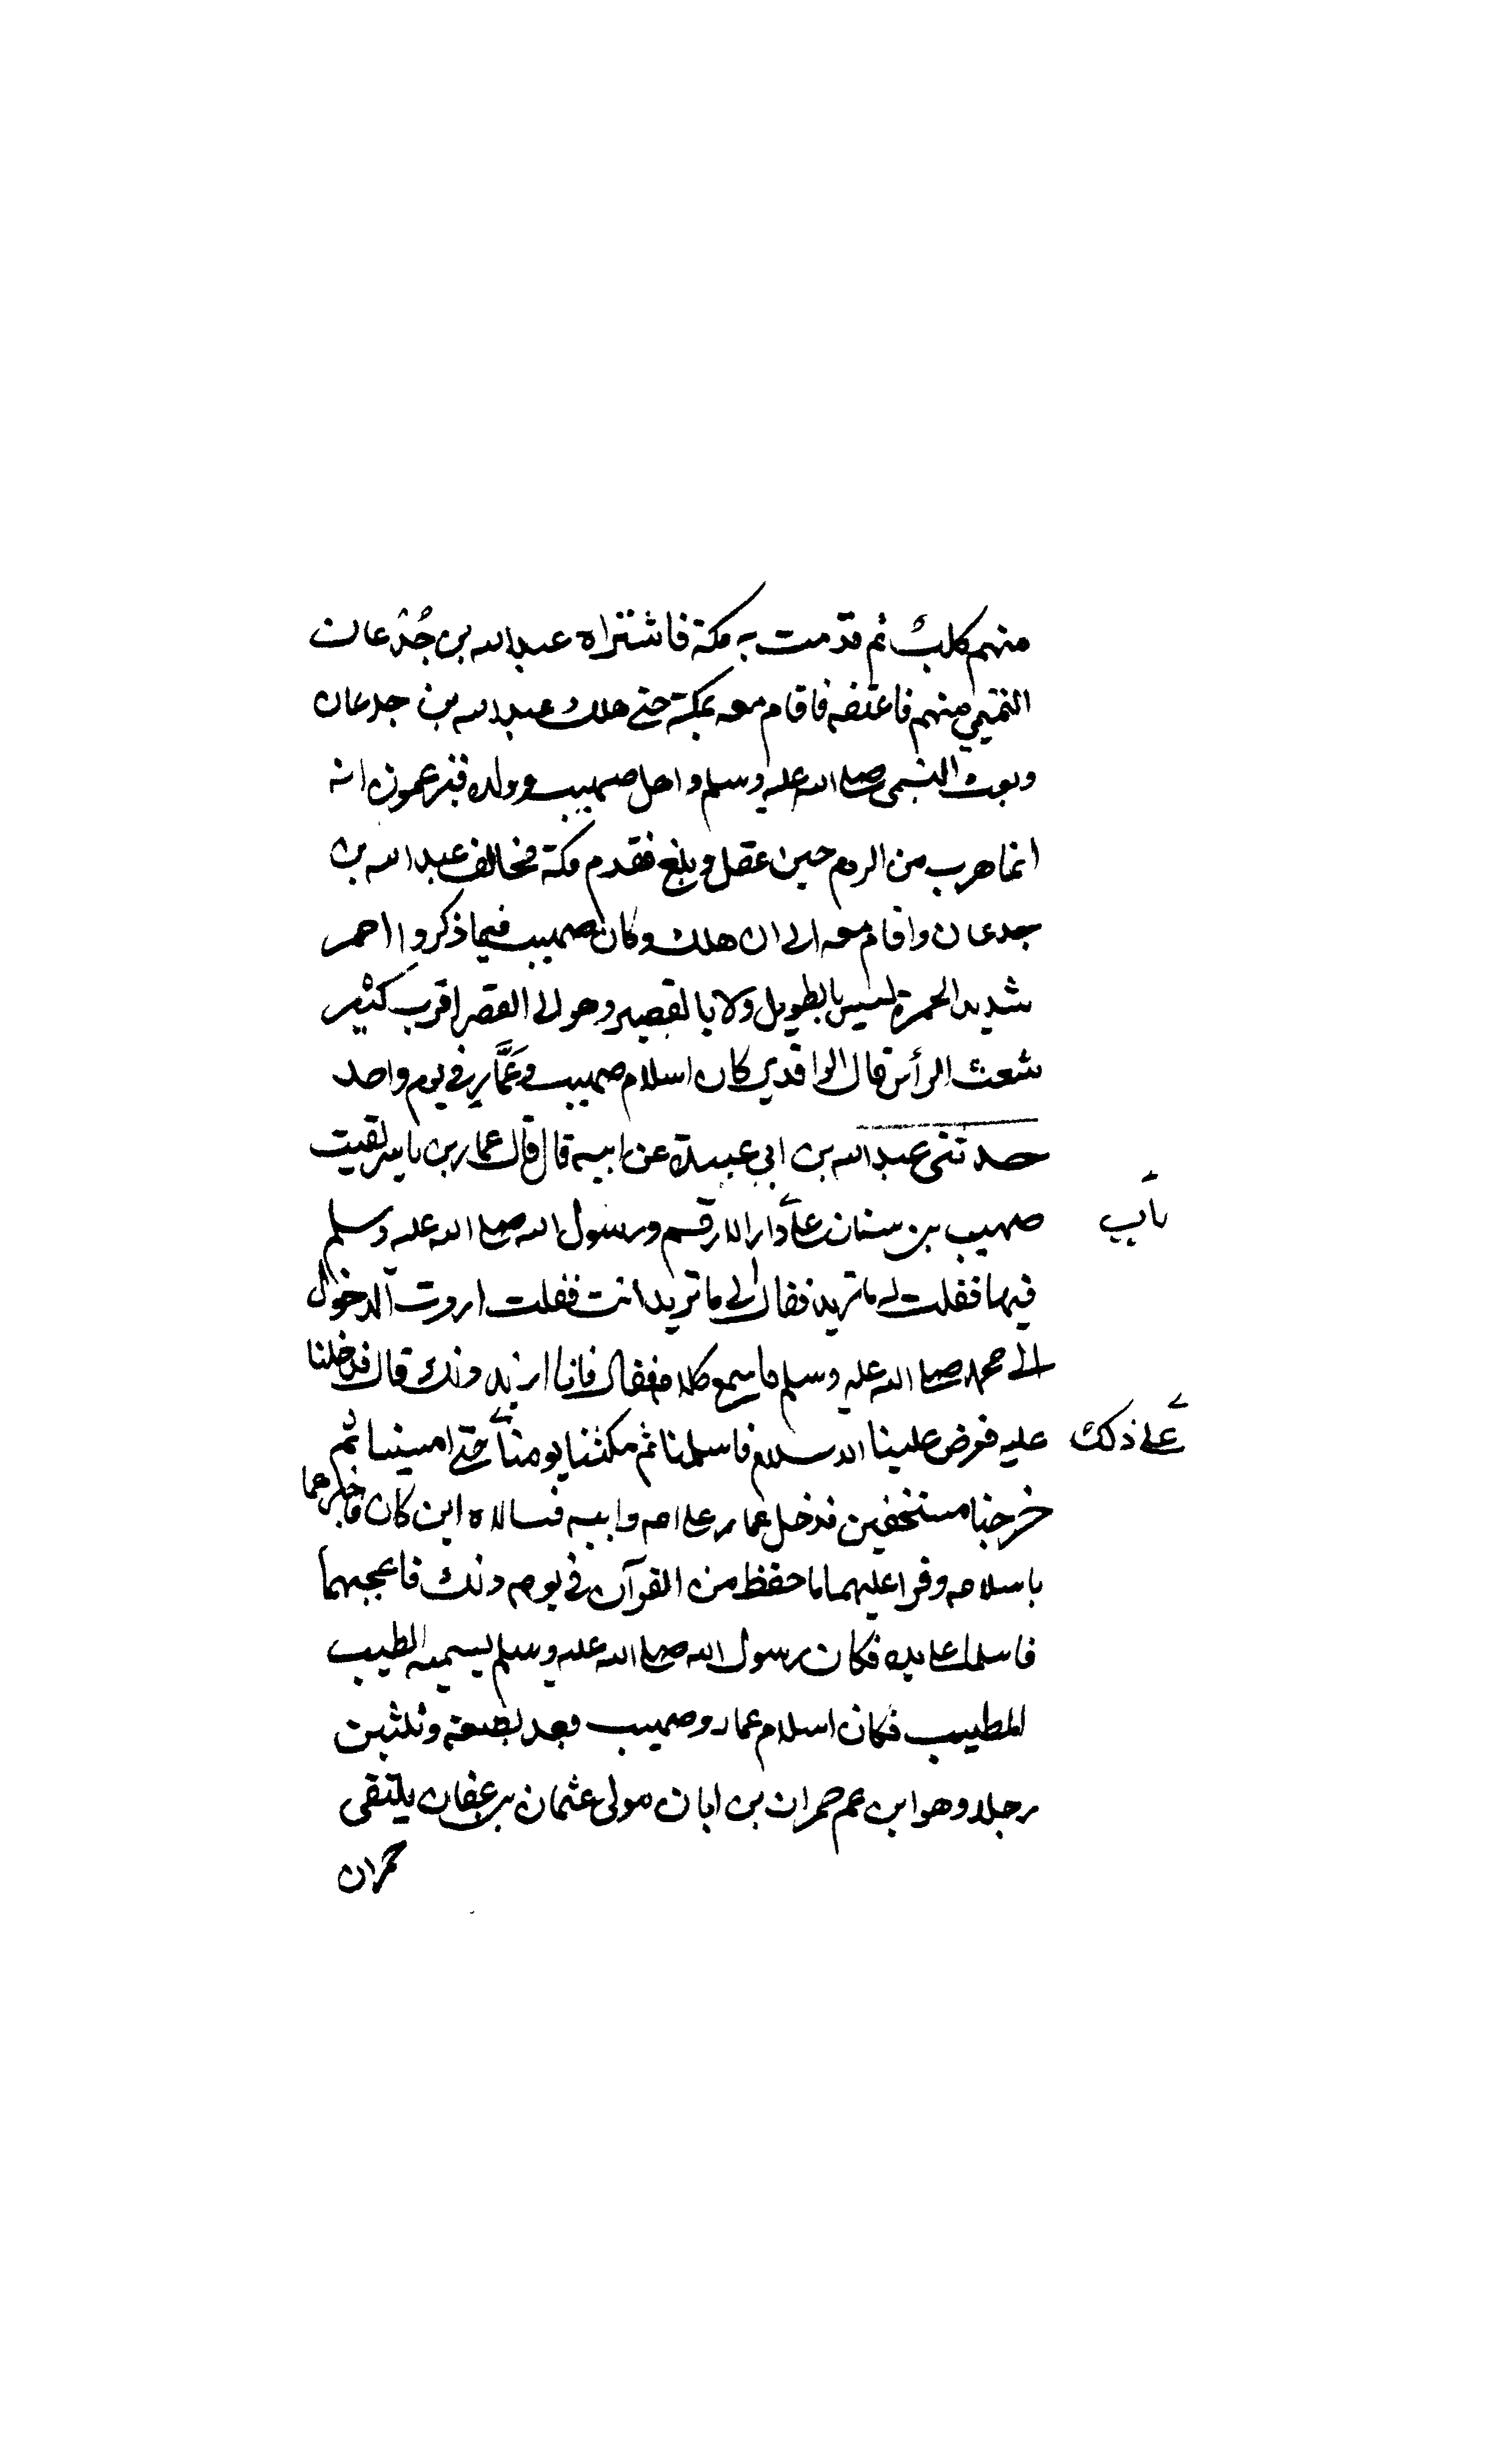 منهم كلبٌ ثم قدمت به مكة فاشتراه عبد الله بن جُدْعان
التيمي منهم فاعتقه فاقام معه بمكة حتى هلك عبد الله بن جدعان
وبعث النبي صلى الله عليه وسلم واهل صهيب وولده فيزعمون انه
انما هرب من الروم حين عقل وبلغ فقدم مكة فحالف عبد الله بن
جدعان واقام معه الى ان هلك وكان صهيب فيما ذكروا احمر
شديد الحمرة ليس بالطويل ولا بالقصير وهو الى القصر اقرب كثير
شعث الرأس قال الواقدي كان اسلام صهيب وعَمَّار في يوم واحد
حدثني عبد الله بن ابي عبيدة عن ابيه قال قال عمار بن ياسر لقيت
صهيب بن سنان على دار الارقم ورسول الله صلى الله عليه وسلم
باب
فيها فقلت له ما تريد فقال لي ما تريد انت فقلت اردت الدخول
الى محمد صلى الله عليه وسلم فاسمع كلامه فقال فانا اريد ذلك قال فدخلنا
عليه فعرض علينا الاسلام فاسلمنا ثم مكثنا يومنا حتى امسينا ثم
على ذلك
خرجنا مستخفين فدخل عمار على امه وابيه فسالاه اين كان فاخبرهما
باسلامه وقرا عليهما ما حفظ من القرآن في يومه ذلك فاعجبهما
فاسلما على يده فكان رسول الله صلى الله عليه وسلم يسميه الطيب
المطيب فكان اسلام عمار وصهيب بعد بضعة وثلثين
رجلا وهو ابن عم حمران بن ابان مولى عثمان بن عفان يلتقي
حمران